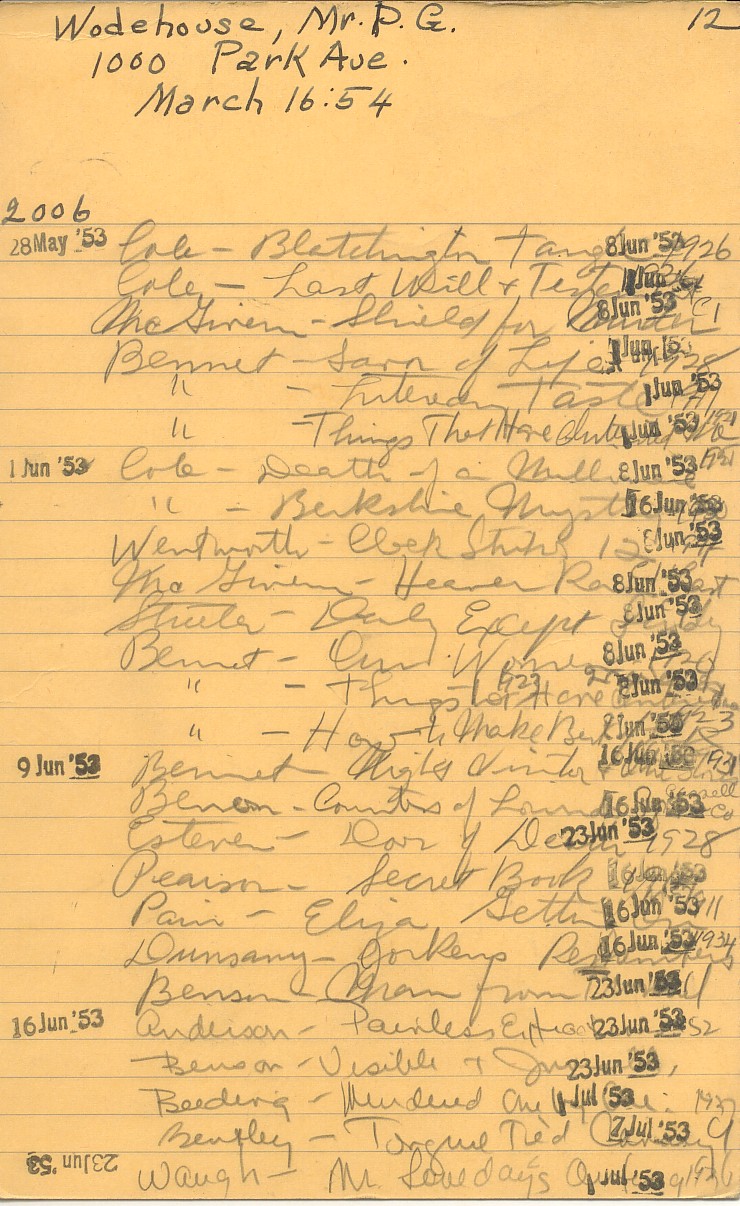 Wodehouse, Mr. P. G. 12
1000 Park Ave.
March 16:54
2006
28 May '53 Cole - Blatchington Tangle 8 Jun '53 1926
Cole - Last Will & Jun
McGivern - Shield for 8 Jun '53
Bennet - Savor of Life Jun
" - Literary Taste 1 Jun '53
" - Things That Have Jun '53
1 Jun '53 Cole - Death of a 8 Jun '53
" - Berkshire Mystery 16 Jun '53
Wentworth - Clock Strikes 12 8 Jun '53
McGivern - Heaven Ran Last 8 Jun '53
Streeter - Daily Except Sunday 8 Jun '53
Bennet - Our Women 8 Jun '53
" - Things Have 8 Jun '53
" - How to Make Jun
9 Jun '53 Bennet - Night Visitor 16 Jun 1931
Benson - Countess of 16 Jun '53
Esteven - Door of Death 23 Jun '53 1928
Pearson - Secret Book 16 Jun '53
Pain - Eliza Getting 16 Jun '53
Dunsany - Jorkens Remembers 16 Jun '53 1934
Benson - from 23 Jun '53
16 Jun '53 Anderson - Painless 23 Jun '53 52
Benson - Visible & 23 Jun '53
Beeding - Murdered One by One Jul '53
Bentley - Tongue Tied 7 Jul '53
23 Jun '53 Waugh - Mr. Loveday's Jul '53